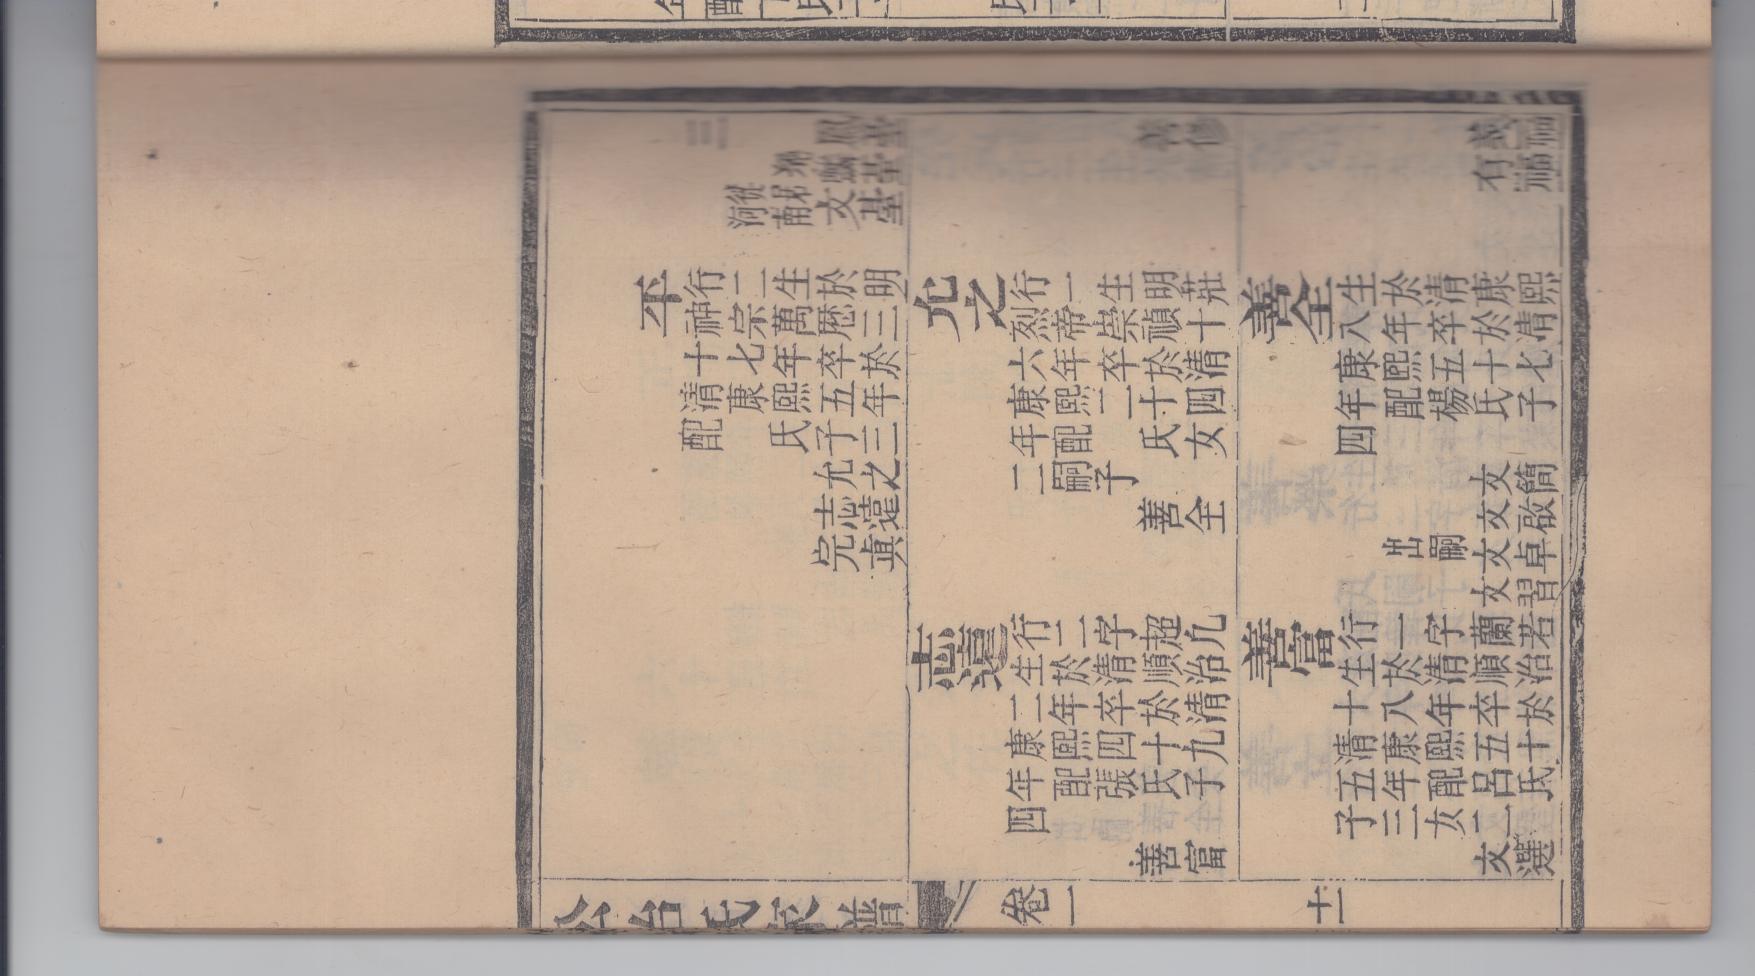 三 鳳基
麟基
文基
丕
行二生於明
神宗萬曆三
十七年卒於
清康熙五年
配 氏子三
允之
志遠
完真
善修
允之
行一生明莊
烈帝崇禎十
六年卒於清
康熙二十四
年配 氏女
二嗣子
善全
志遠
行二字超凡
生於清順治
二年卒於清
康熙四十九
年配張氏子
四
善富
有福
善全
生於清康熙
八年卒於清
康熙五十七
年配楊氏子
四
文簡
文啟
文卓 出嗣
文習
善富
行一字蘭若
生於清順治
十八年卒於
清康熙五十
五年配呂氏
子三女二
文選
公台氏宗譜 卷一 十一